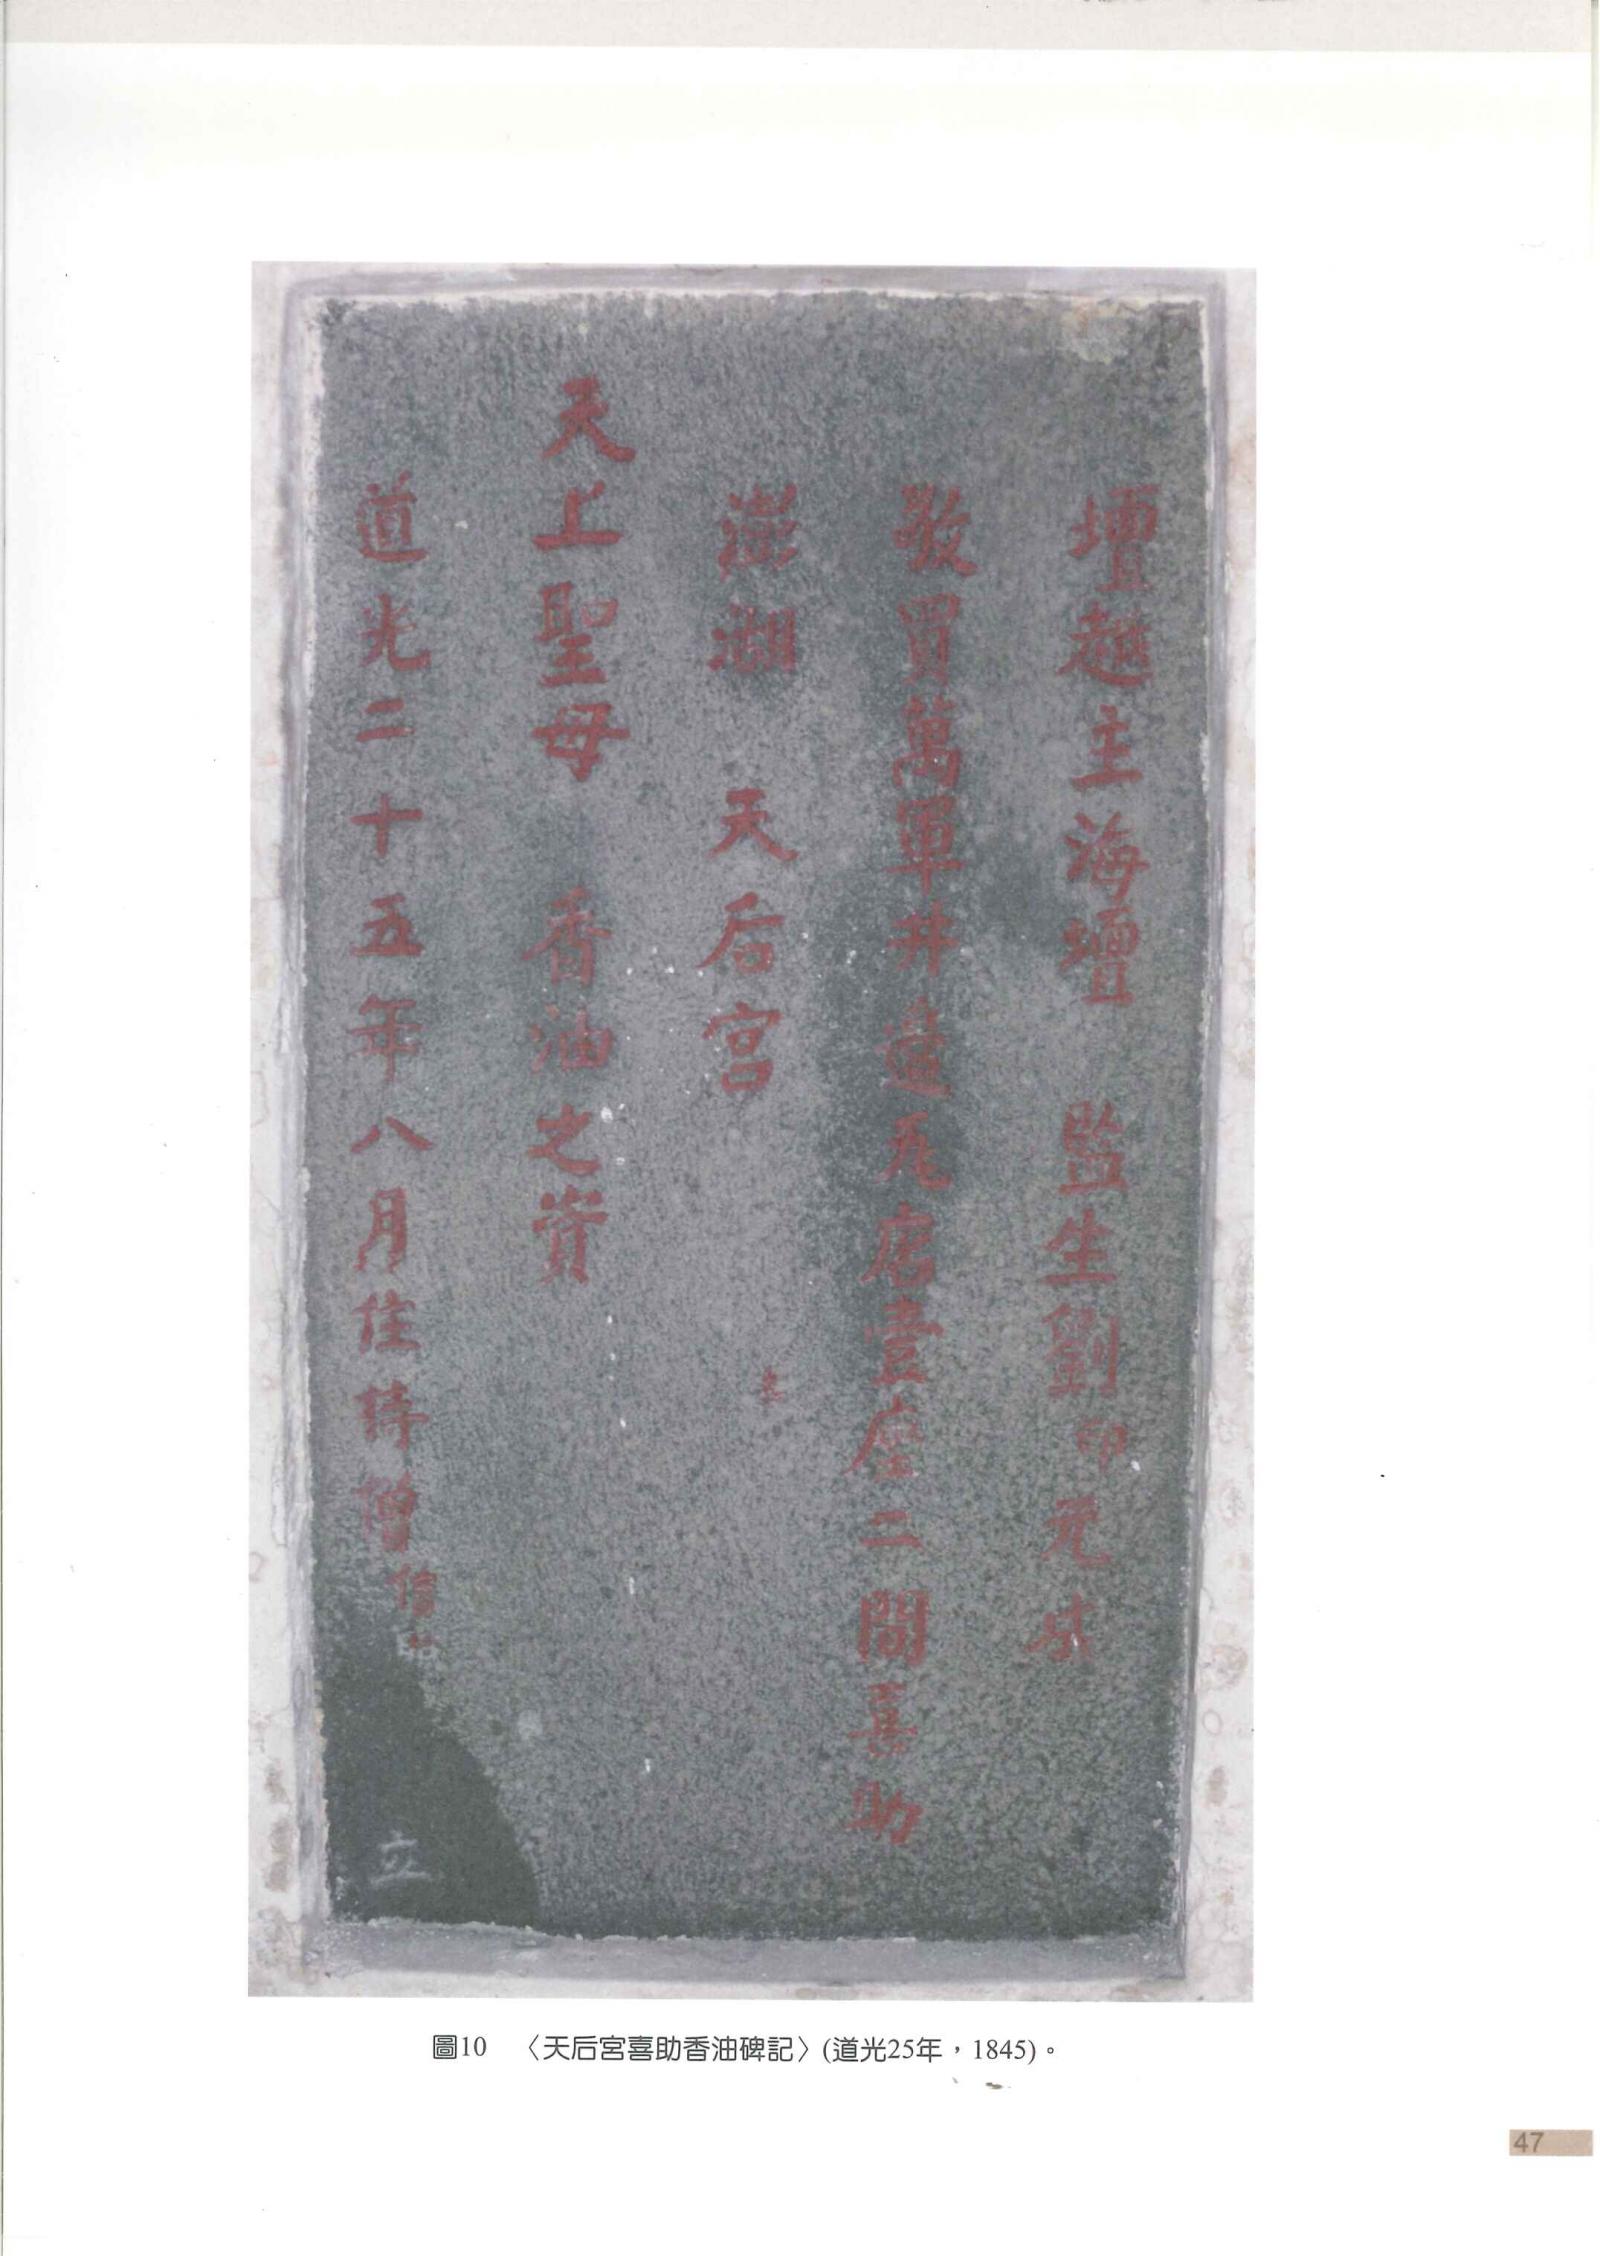 壇越主海壇　監生劉印元成
敬買萬軍井邉瓦店壹座二間喜助
澎湖　天后宮
天上聖母　香油之資
道光二十五年八月住持僧信 立
圖10　〈天后宮喜助香油碑記〉(道光25年，1845)。
47